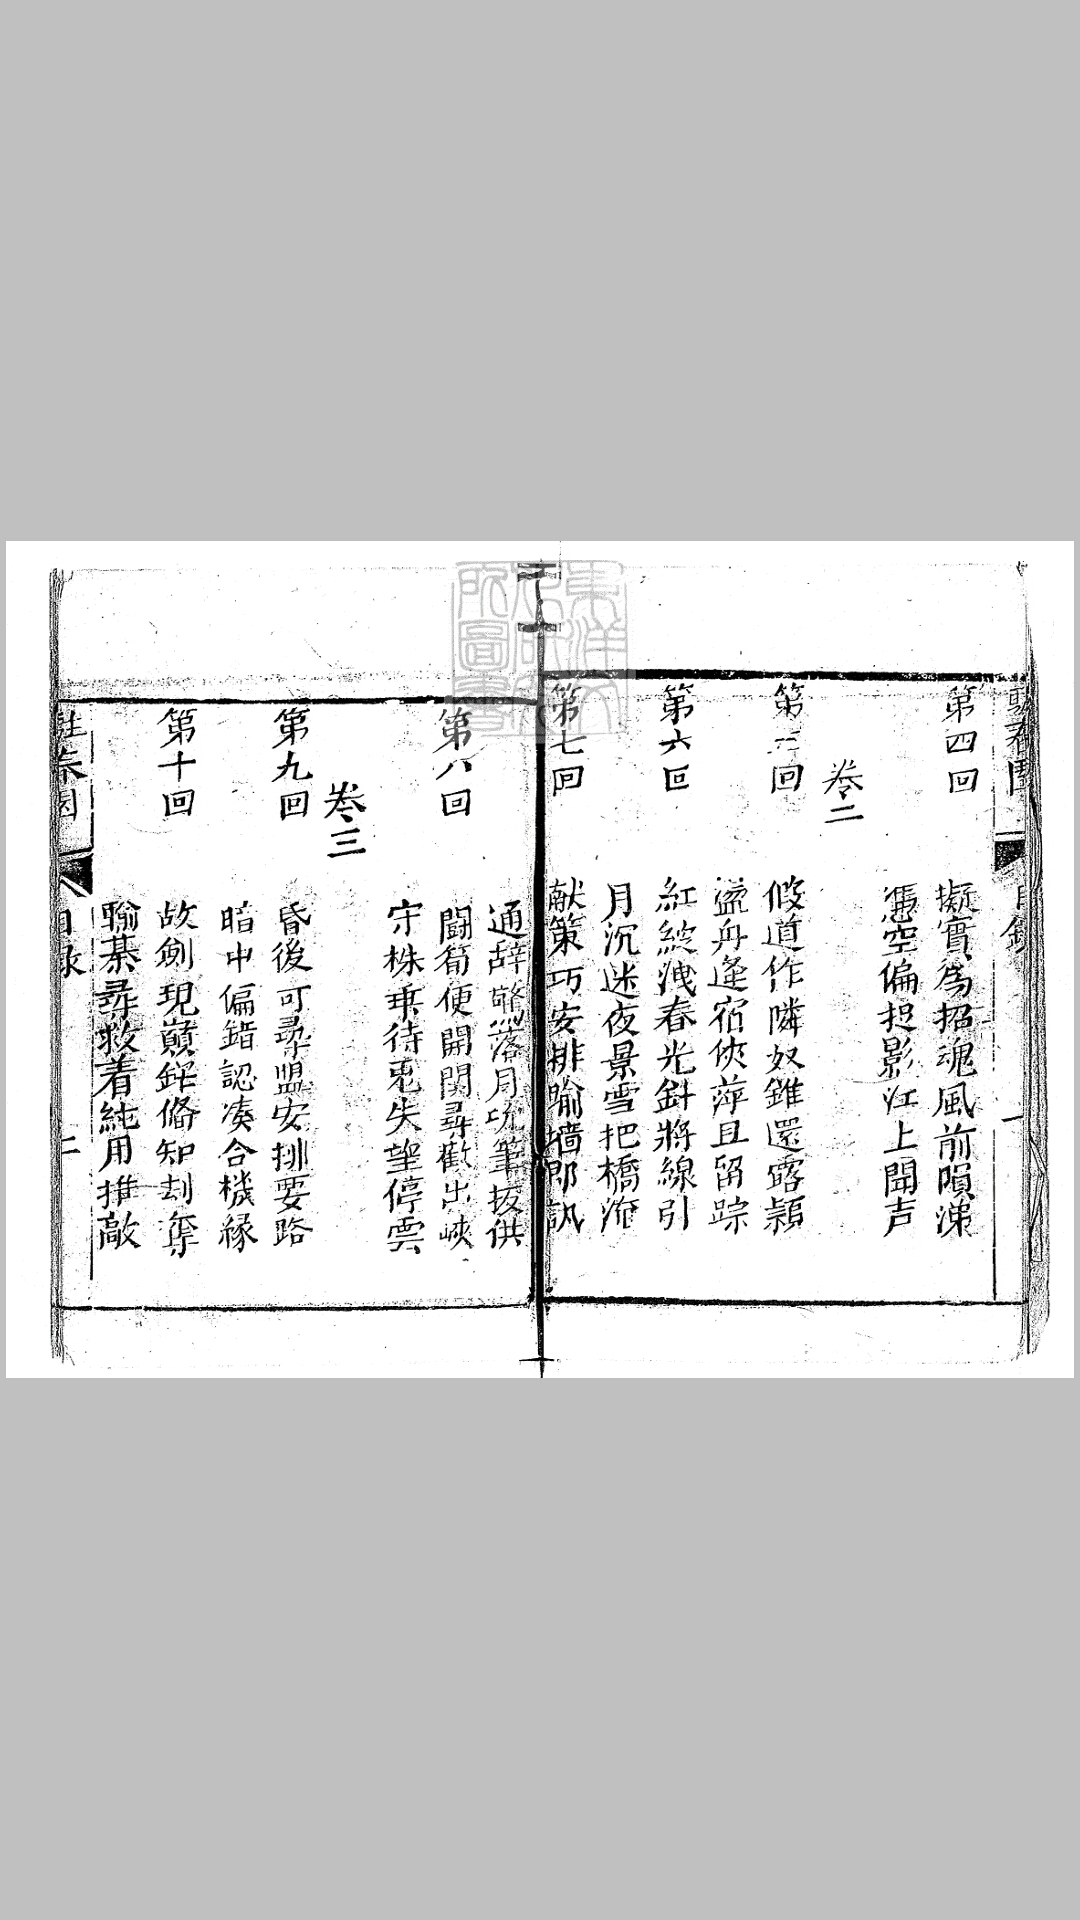 第四回　擬實為招魂風前隕涕
憑空偏捉影江上聞声
卷二
第五回　假道作隣奴錐還露穎
盜舟逢宿俠萍且留踪
第六回　紅綻洩春光針將線引
月沉迷夜景雪把橋流
第七回　献策巧安排喻墙即訊
通辞驚落月玩筆拔供
第八回　闘筍便開関尋歡出峽
守株乗待兎失望停雲
卷三
第九回　昏後可尋盟安排要路
暗中偏錯認湊合機縁
第十回　故劍現巔崖俻知刦奪
輸棊尋救着純用推敲
目录
二